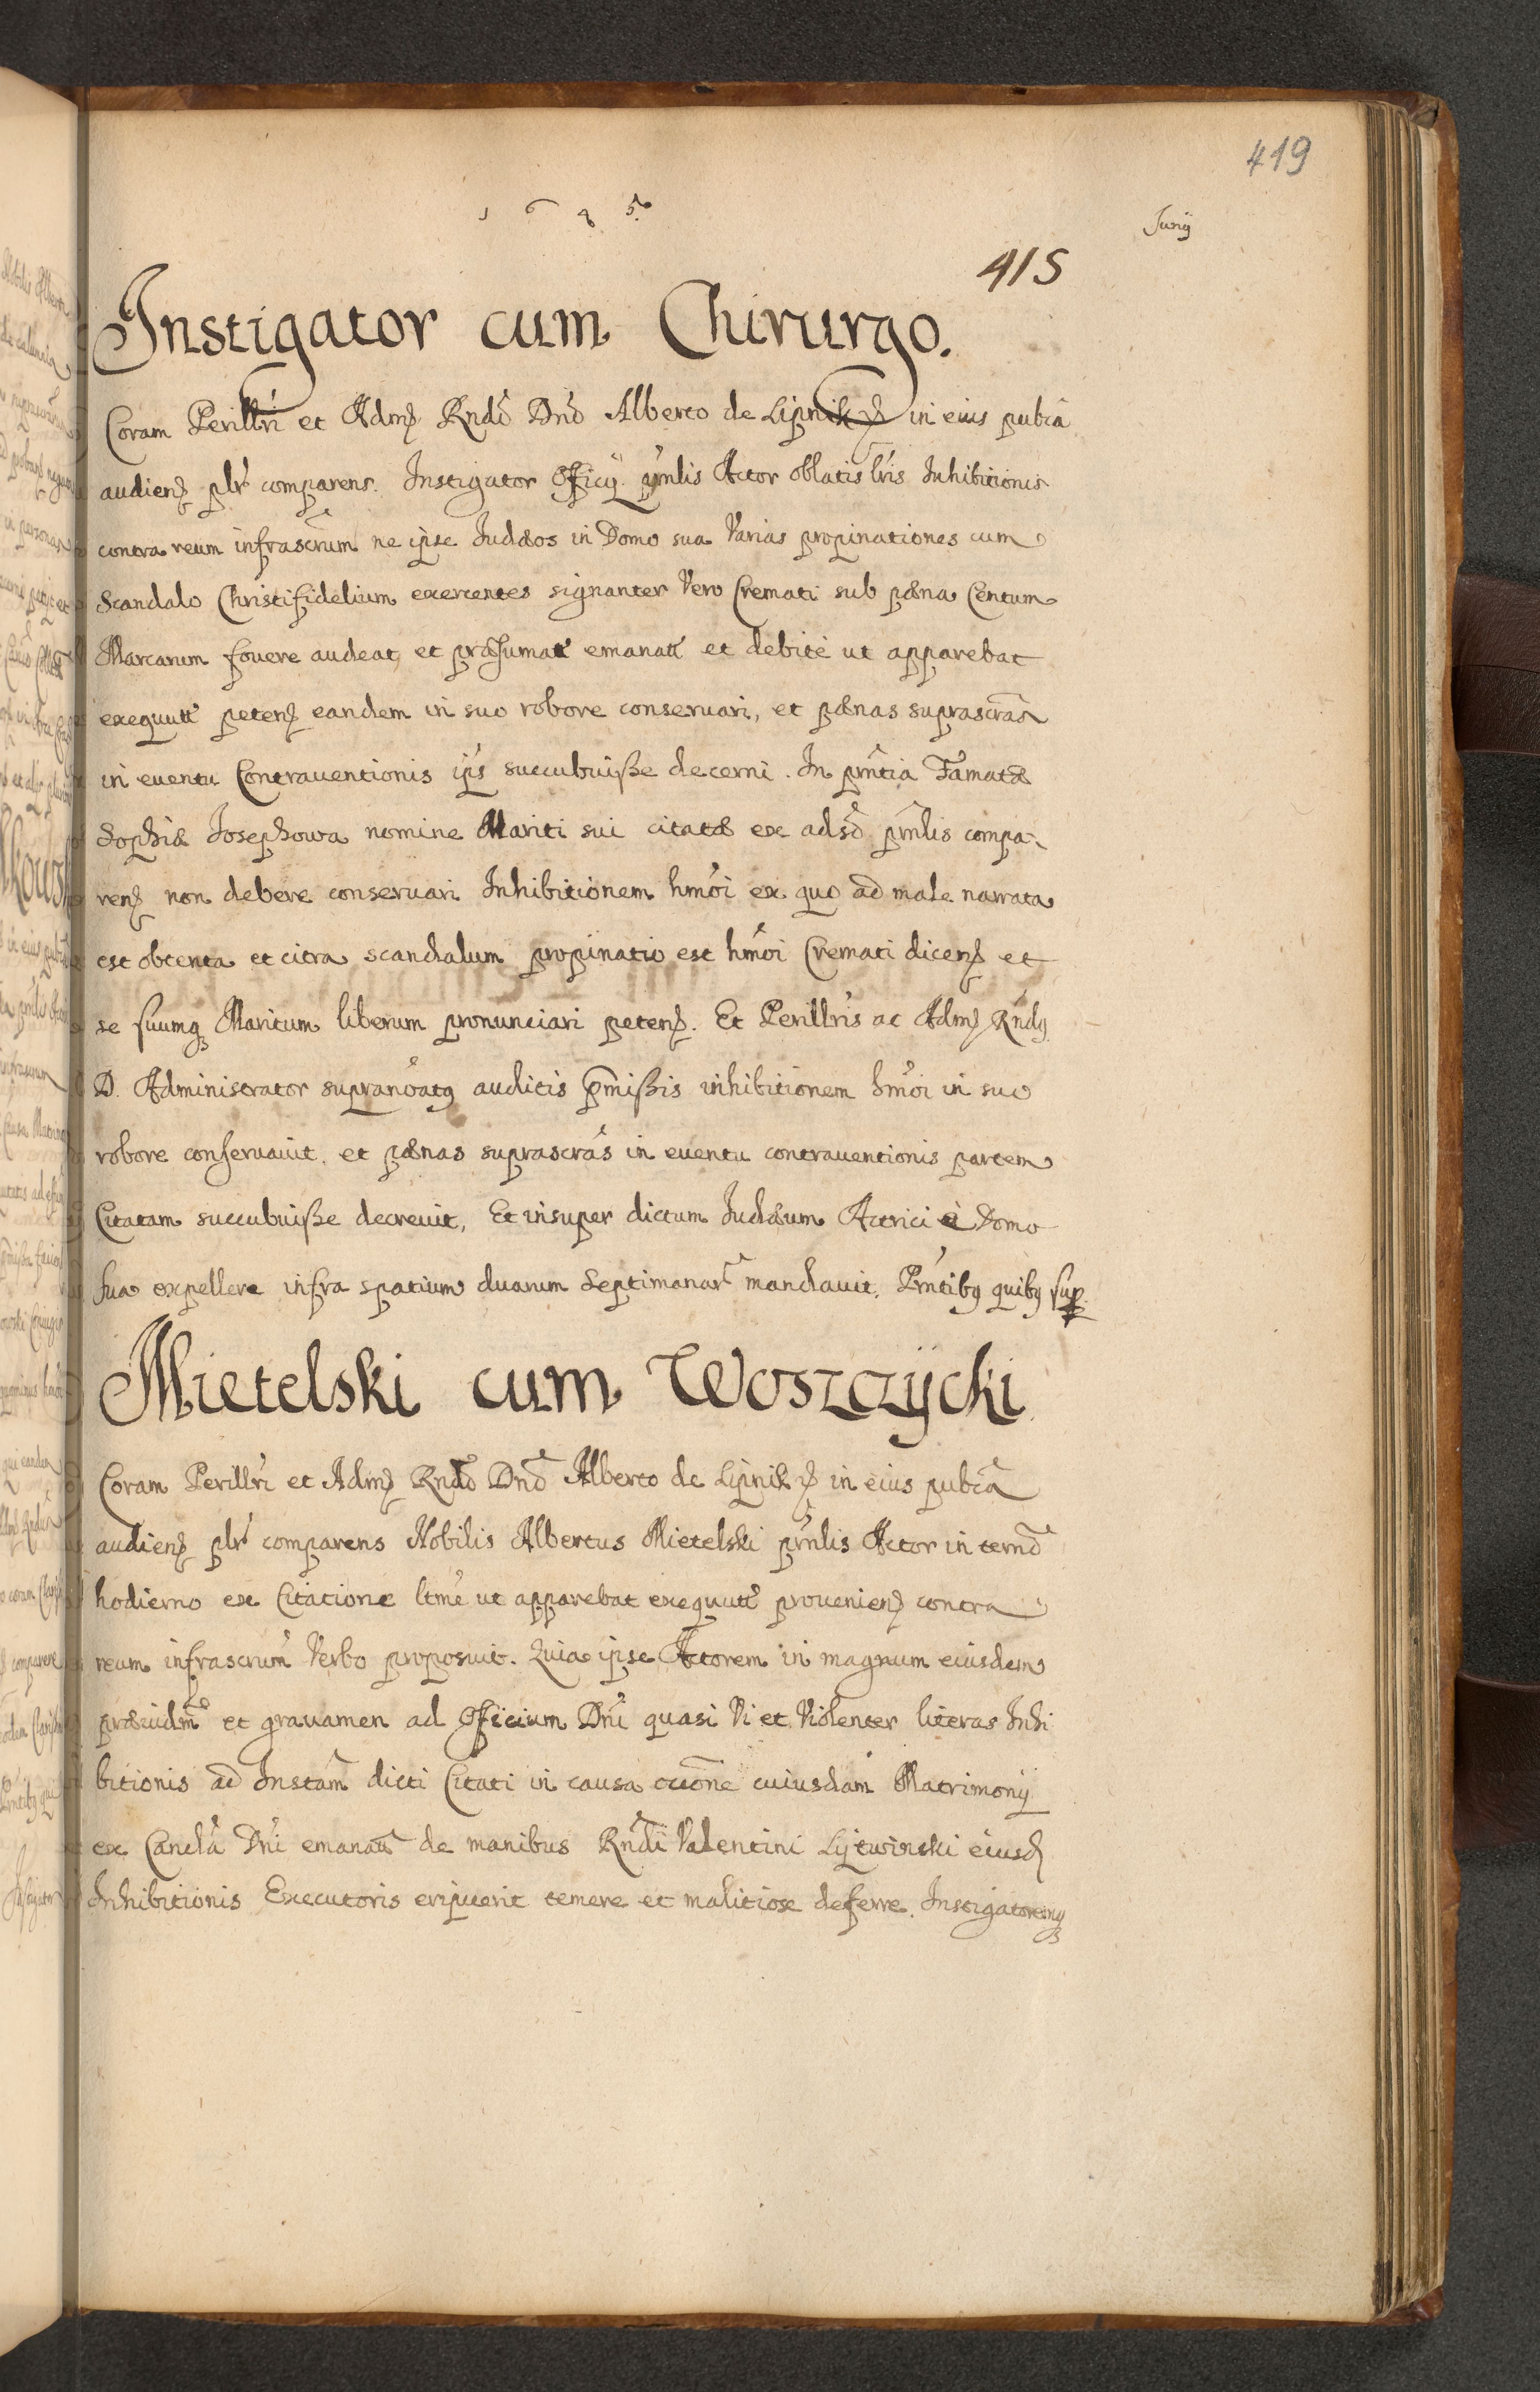 419
1685.
Junÿ
415
Instigator cum Chirurgo.
Coram Perillri et Adm Rndo Dno Alberto de Lipnik in eius publca
audien plr comparens. Instigator Officÿ prnlis Actor oblatis lris Inhibitionis
contra reum infrascrum ne ipse Judæos in Domo sua Varias propinationes cum
Scandalo Christifidelium exercentes signanter Vero Cremati sub pæna Centum
Marcarum fouere audeat, et præsumat emanatt et debité ut apparebat
exequutt peten eandem in suo robore conseruari, et pænas suprascras
in euentu Contrauentionis ips succubuisse decerni. In prntia Famatæ
Sophiæ Josephowa nomine Mariti sui citatæ ex adso prnlis compa-
ren non debere conseruari Inhibitionem hmoi ex quo ad male narrata
est obtenta et citra scandalum propinatio est hmoi Cremati dicen et
se suumq Maritum liberum pronunciari peten. Et Perillris ac Adm Rndg
D. Administrator supranoatg auditis pmissis inhibitionem hmoi in suo
robore conseruauit. et pænas suprascras in euentu contrauentionis partem
Citatam succubuisse decreuit, Et insuper dictum Judæum Actrici è Domo
sua expellere infra spatium duarum Septimanar mandauit. Prntibg quibg sup
Mietelski cum Woszczÿcki.
Coram Perillri et Adm Rndo Dno Alberto de Lipnik in eius publca
audien plr comparens Nobilis Albertus Mietelski prnlis Actor in termo
hodierno ex Citatione ltme ut apparebat exequutt prouenien contra
reum infrascrum Verbo proposuit. Quia ipse Actorem in magnum eiusdem
præiudm et grauamen ad Officium Dni quasi Vi et Violenter literas Inhi
bitionis ad Instam dicti Citati in causa occone cuiusdam Matrimonÿ
ex Canclâ Dni emanatt de manibus Rndi Valentini Lytwinski eiusd
Inhibitionis Executoris eripuerit temere et malitiose deferre. Instigatoremq